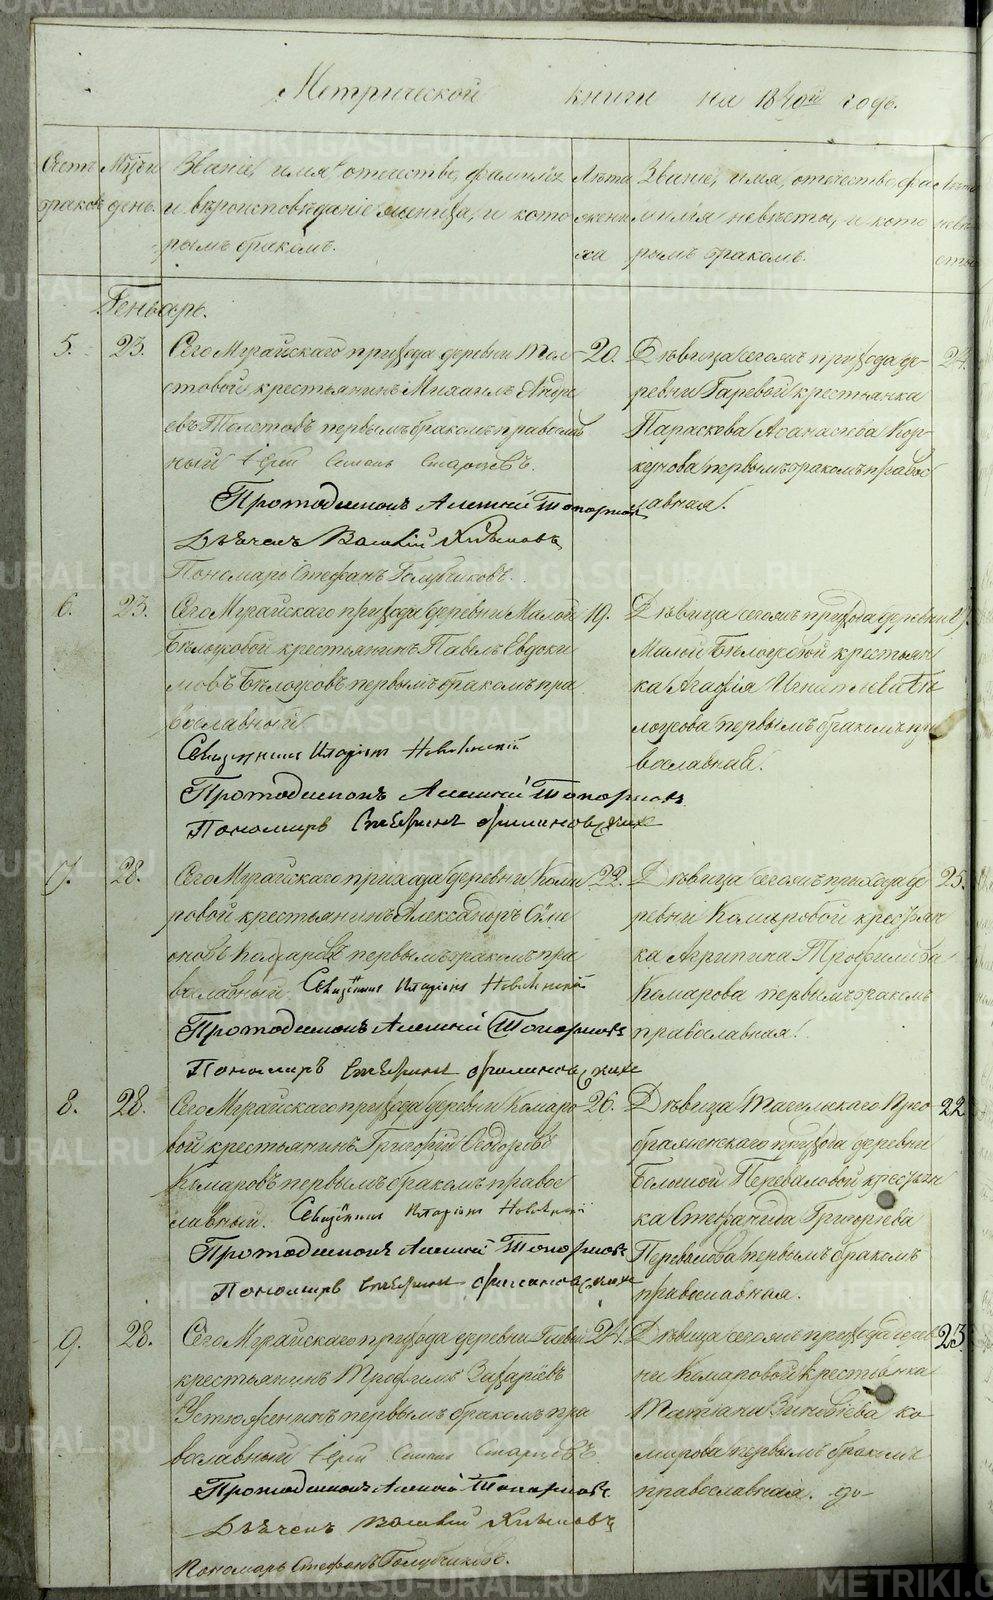 Метрической книги на 1840ой годъ.
Счетъ браковъ
Мцъ и день.
Званіе, имя, отчество, фамилія
и вѣроисповѣданіе жениха, и кото
рымъ бракомъ.
Лѣта
жени
ха
Званіе, имя, отечество, фа
милія невѣсты, и кото
рымъ бракомъ.
Лѣта
невѣ
сты
Геньварь.
5. 23.
Сего Мурайскаго прихода деревни Тол-
стовой крестьянинъ Михаилъ Андре
евъ Толстовъ первымъ бракомъ православ
ный Іерей Симеонъ Старцевъ.
Протодиаконъ Алексій Топорковъ
Дьячекъ Василій
Пономарь Стефанъ Голубчиковъ.
20.
Дѣвица сегожъ прихода де-
ревни Гаревой крестьянка
Параскева Афанасіева Кор-
кунова первымъ бракомъ правос
лавная.
24.
6. 23.
Сего Мурайскаго прихода деревни Малой
Бѣлоусовой крестьянинъ Павелъ Евдоки
мовъ Бѣлоусовъ первымъ бракомъ пра
вославный
Священникъ Иларіонъ
Протодиаконъ Алексій Топорковъ
Пономарь
19.
Дѣвица сегожъ прихода деревни
Малой Бѣлоусовой крестьян
ка Агафія Игнатьева Бѣ
лоусова первымъ бракомъ пра
вославная.
7. 28.
Сего Мурайскаго прихода деревни Кома
ровой крестьянинъ Александръ Симе
оновъ Комаровъ первымъ бракомъ пра
вославный. Священникъ Иларіонъ
Протодиаконъ Алексій Топорковъ
Пономарь
22.
Дѣвица сегожъ прихода де
ревни Комаровой крестьян
ка Агрипина Трофимова
Комарова первымъ бракомъ
православная.
25.
8. 28.
Сего Мурайскаго прихода деревни Комаро
вой крестьянинъ Григорій Феодоровъ
Комаровъ первымъ бракомъ правос
лавный. Священникъ Иларіонъ
Протодиаконъ Алексій Топорковъ
Пономарь
26.
Дѣвица Прео
браженскаго прихода деревни
Большой Переваловой крестьян
ка Стефанида Григорьева
Перевалова первымъ бракомъ
православная.
22
9. 28.
Сего Мурайскаго прихода деревни
крестьянинъ Трофимъ Захаріевъ
Устюжанинъ первымъ бракомъ пра
вославный Іерей Симеонъ Старцевъ.
Протодиаконъ Алексій Топорковъ.
Дьячекъ Василій
Пономарь Стефанъ Голубчиковъ.
24.
Дѣвица сегожъ прихода дерев
ни Комаровой крестьянка
Татіана Зиновіева Ко
марова первымъ бракомъ
православная.
23.
METRIKI.GASO-URAL.RU